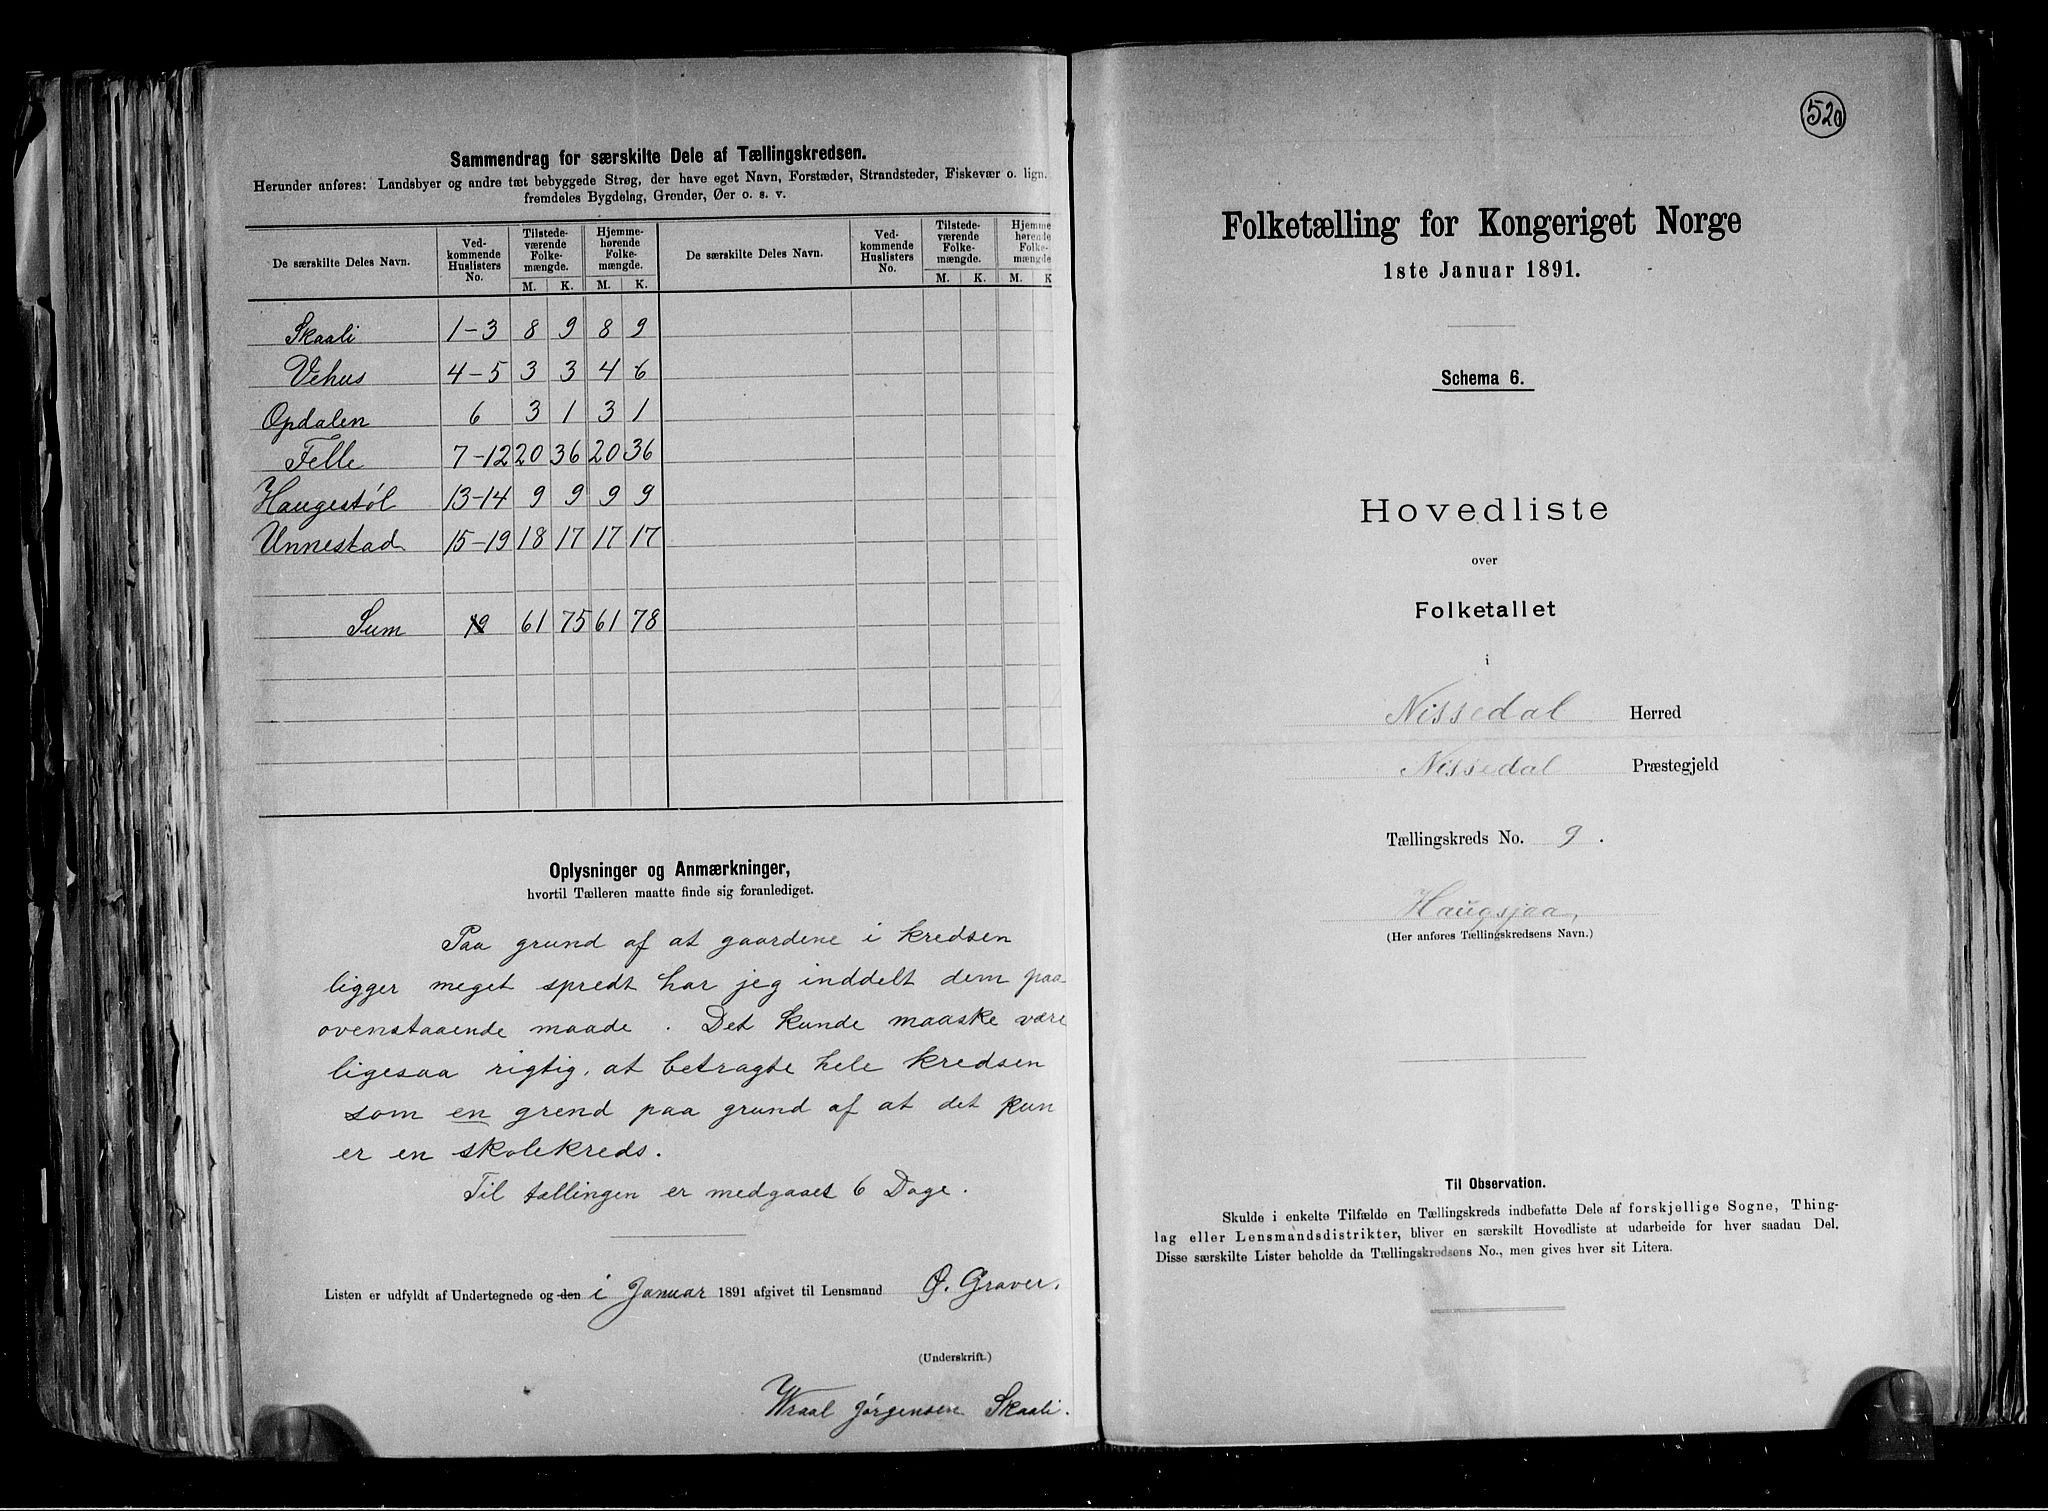 Sammendrag for særskilte Dele af Tællingskredsen.
Herunder anføres: Landsbyer og andre tæt bebyggede Strøg, der have eget Navn, Forstæder, Strandsteder, Fiskevær o. lign.
fremdeles Bygdelag, Grender, Øer o. s. v.
De særskilte Deles Navn. Ved-kommende Huslisters No. Tilstede-værende Folke-mængde. Hjemme-hørende Folke-mængde. De særskilte Deles Navn. Ved-kommende Huslisters No. Tilstede-værende Folke-mængde. Hjemme-hørende Folke-mængde
M. K. M. K. M. K. M. K
Skaali 1-3 8 9 8 9
Vehus 4-5 3 3 4 6
Opdalen 6 3 1 3 1
Felle 7-12 20 36 20 36
Haugestøl 13-14 9 9 9 9
Unnestad 15-19 18 17 17 17
Sum 19 61 75 61 78
Oplysninger og Anmærkninger,
hvortil Tælleren maatte finde sig foranlediget.
Paa grund af at gaardene i kredsen
ligger meget spredt har jeg inddelt dem paa
ovenstaaende maade. Det kunde maaske være
ligesaa rigtig, at betragte hele kredsen
som en grend paa grund af at det kun
er en skolekreds.
Til tællingen er medgaaet 6 Dage.
Listen er udfyldt af Undertegnede og den i Januar 1891 afgivet til Lensmand Ø. Graver.
(Underskrift.)
Wraal Jørgensen Skaali.
520
Folketælling for Kongeriget Norge
1ste Januar 1891.
Schema 6.
Hovedliste
over
Folketallet
i
Nissedal Herred
Nissedal Præstegjeld
Tællingskreds No. 9.
Haugsjaa,
(Her anføres Tællingskredsens Navn.)
Til Observation.
Skulde i enkelte Tilfælde en Tællingskreds indbefatte Dele af forskjellige Sogne, Thing-
lag eller Lensmandsdistrikter, bliver en særskilt Hovedliste at udarbeide for hver saadan Del.
Disse særskilte Lister beholde da Tællingskredsens No., men gives hver sit Litera.